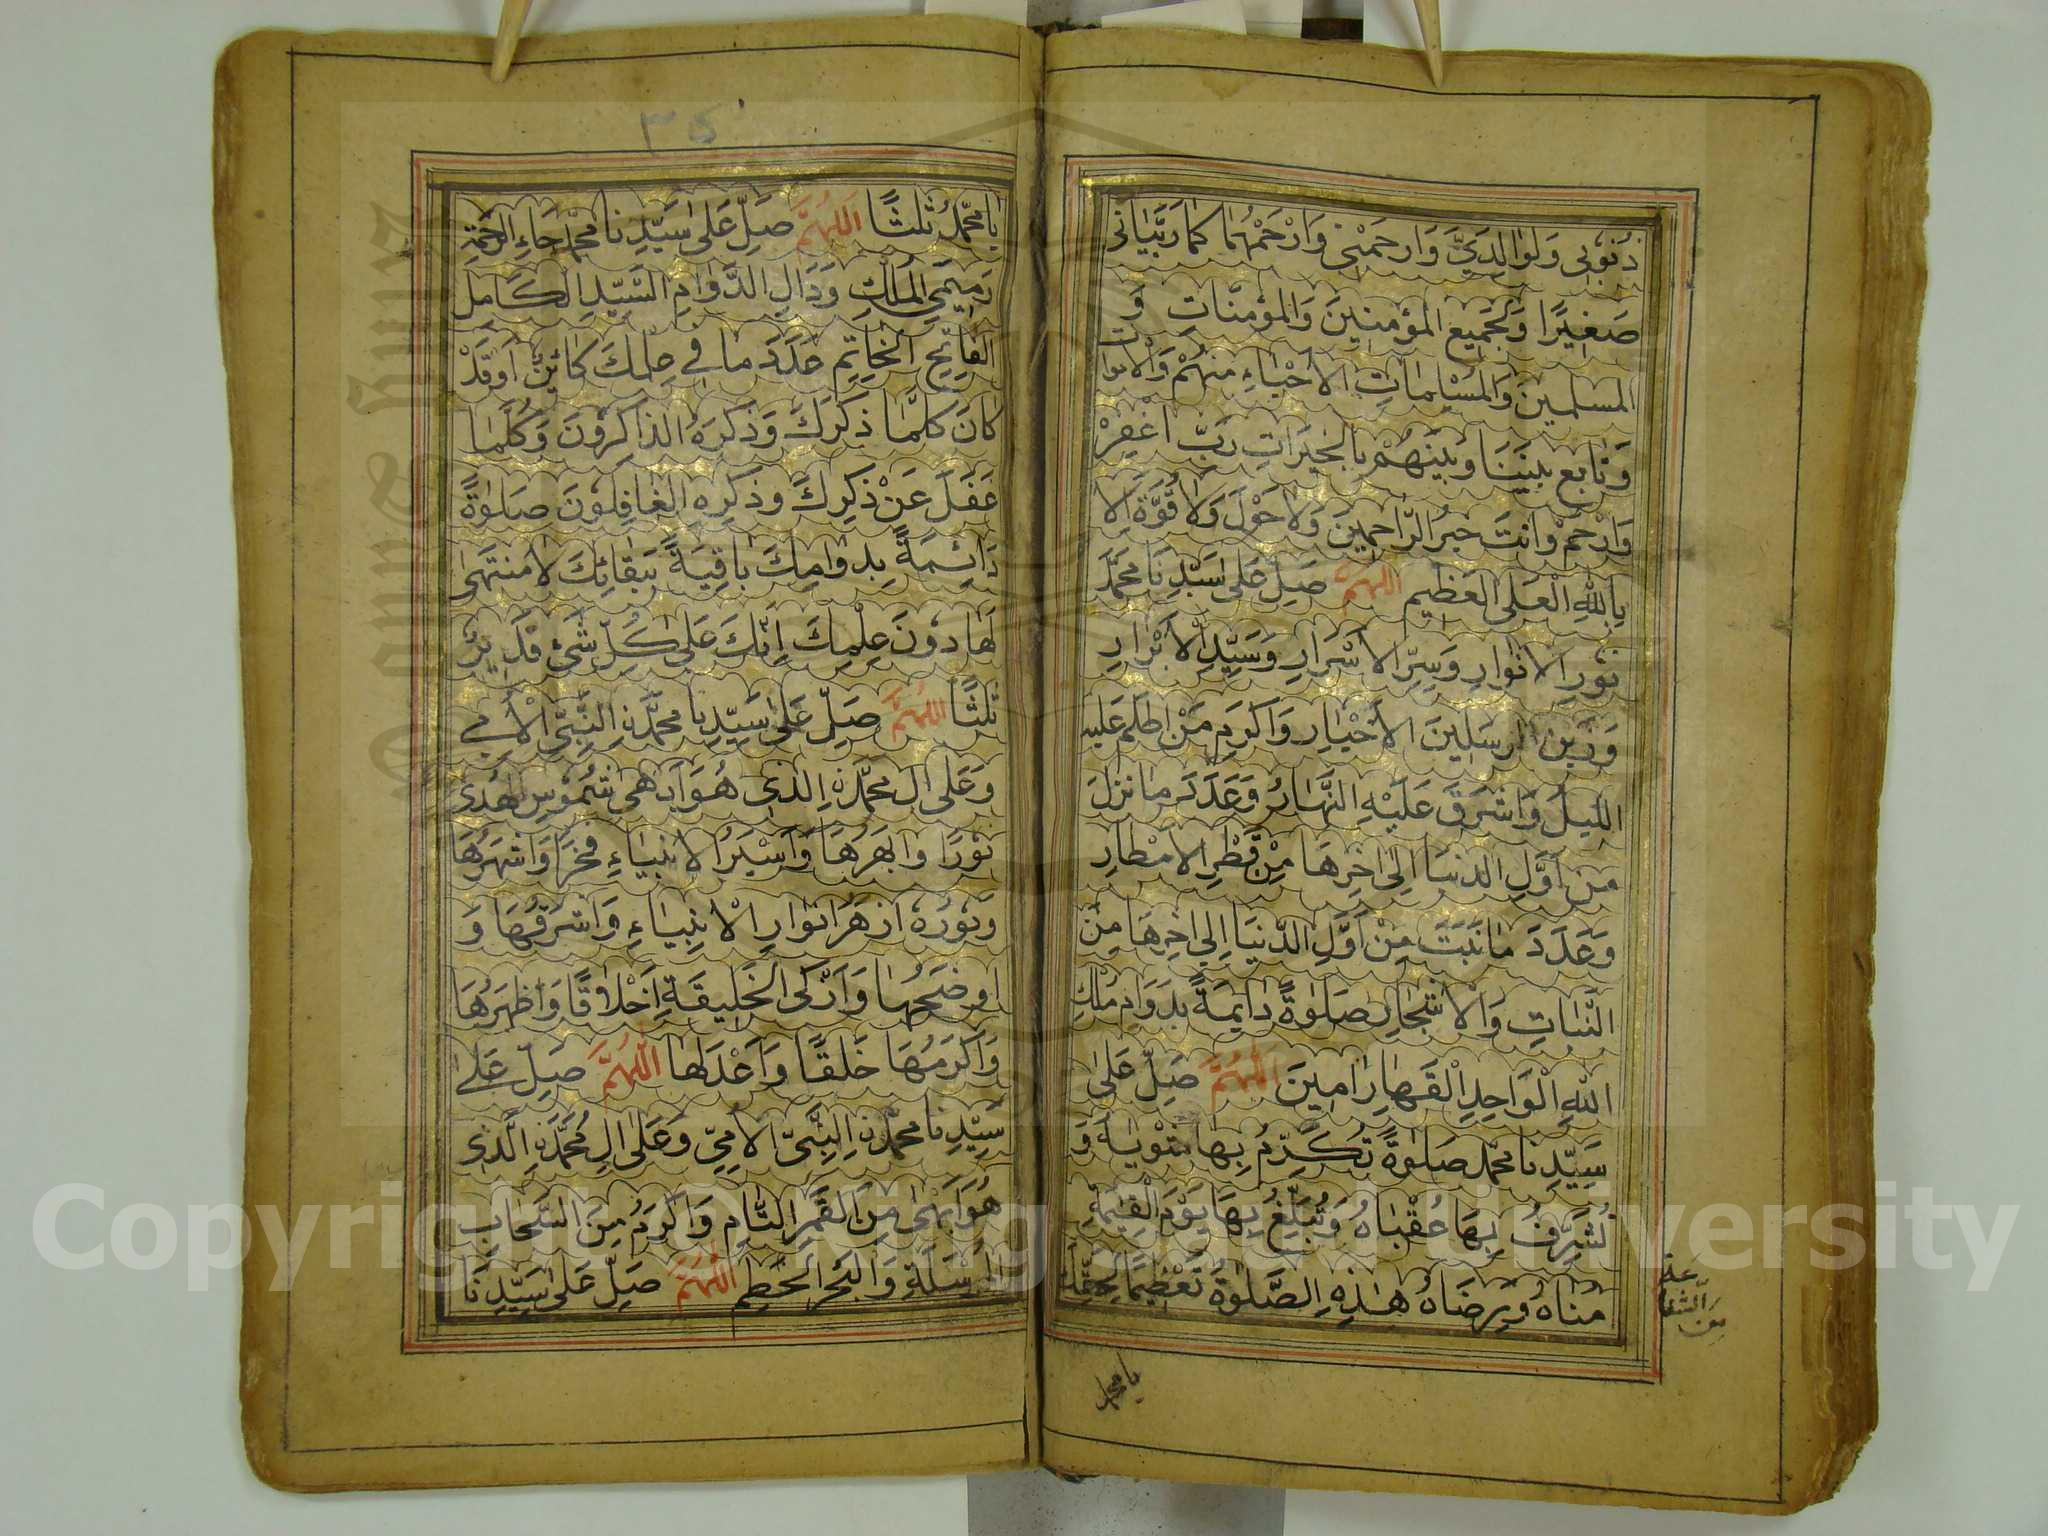 ذُنُوبِى وَلِوٰالِدَىَّ وَارحَمْنى وَارْحَمْهُما كَمٰا رَبَّيٰانى
صَغيرًا وَلجَميعِ المؤمنينَ وَالمؤمنٰاتِ وَ
المسلمينَ وَالمُسْلِمٰاتِ الاَحْيٰاءِ منهُمْ وَالْاَموٰات
وَتٰابع بَينَنَا وَبَينَهُمْ بِالخَيرَاتِ رَبِّ اغْفِرْ
وَارْحَمْ وَانتَ خيرُ الرّاحمِينَ وَلاحَوْلَ وَلاقُوَّةَ اِلا
بِاللّٰهِ الْعَلى العَظيم اللهُمَّ صَلِّ عَلى سَيّدِنَا محَمَّد
نُورِ الاَنوٰارِ وَسِرِّ الاَسْرَارِ وَسَيِّدِ الاَبْرٰارِ
وَزَينِ المرسَلينَ الاَخْيٰارِ وَاَكرَمِ مَنْ اَظلَمَ عَليه
الليلُ وَاَشرَقَ عَلَيْهِ النَّهٰارُ وَعَدَدَ مٰا نَزَلَ
من اَوَّلِ الدنيٰا اِلى اٰخِرِهَا مِنْ قَطْرِ الاَمْطٰارِ
وَعَدَدَ مٰا نَبَتَ مِنْ اَوَّلِ الدّنيَا اِلى اٰخرِهَا مِنَ
النَّبٰاتِ وَالْاَشجٰارِ صَلٰوةً دٰايمَةً بِدَوَامِ مُلْكِ
اللّٰهِ الْوَاحِدِ الْقَهّارِ اٰمينَ اللّٰهُمَّ صَلِّ عَلىٰ
سَيّدِنٰا محمّد صَلٰوةً تُكَرِّمُ بِهٰا مَثوٰيهُ وَ
تُشَرِّفُ بِهَا عُقْبٰاهُ وَتُبَلِّغُ بِهَا يَوْمَ الْقِيٰمَةِ
مُنٰاهُ وَرِضَاهُ هٰذِهِ الصَّلٰوةُ تَعْظيمًا لِحَقِّكَ
يا محمد
٣٥
يٰا محمّدُ ثَلٰثًا اَللهُمَّ صَلِّ عَلى سَيّدِنٰا محمّد حٰاءِ الرحمةِ
وَميمَىِ المُلكِ وَدَالِ الدَّوٰامِ السَّيّدِ الكَامل
الفٰاتِحِ الخٰاتِمِ عَدَدَ مٰا فى عِلمِكَ كٰائنٌ اَوقَدْ
كٰانَ كلّمٰا ذَكَرَكَ وَذكَرَهُ الذاكِرُونَ وَكُلَّمٰا
غَفَلَ عَنْ ذِكرِكَ وَذِكرِهِ الغٰافِلُونَ صَلٰوةً
دٰائِمَةً بِدوٰامِكَ بٰاقِيَةً بِبَقٰائِكَ لامُنتَهىٰ
لَهَا دوُنَ عِلْمِكَ اِنَّكَ عَلى كُلِّ شَئ قَدِيرٌ
ثَلٰثًا اللهُمَّ صَلِّ عَلىٰ سَيّدِنٰا محمّدَنِ النّبِىّ الْاُمِّى
وَعَلى اٰل محمَّدَنِ الذى هُوَ اَبهى شُمُوسِ الهُدى
نوُرًا وَابهَرُهَا وَاَسْيَرُ الاَنبيٰاءِ فَخرًا وَاَشهَرُهَا
وَنُورُهُ اَزهَرُ اَنوَارِ الْاَنبِيٰاءِ وَاَشرَقُهَا وَ
اوضَحُهٰا وَاَزْكَى الخَليقَةِ اَخْلاٰقًا وَاَظهَرُهَا
وَاَكرَمُهَا خَلقًا وَاَعْدَلهَا اللّٰهُمَّ صَلّ عَلىٰ
سَيّدِنٰا محمّدَنِ النّبِىّ الاُمِّىّ وَعَلى اٰلِ مُحَمَّدَنِ الَّذى
هُوَ اَبهىٰ مِنَ القَمَرِ التّامِ وَاَكرَمُ مِنَ السَّحٰابِ
المرسَلَةِ وَالبَحرِ الخِطَمِ اللّٰهُمَّ صَلّ عَلىٰ سَيّدِنَا
Copyright © King Saud University